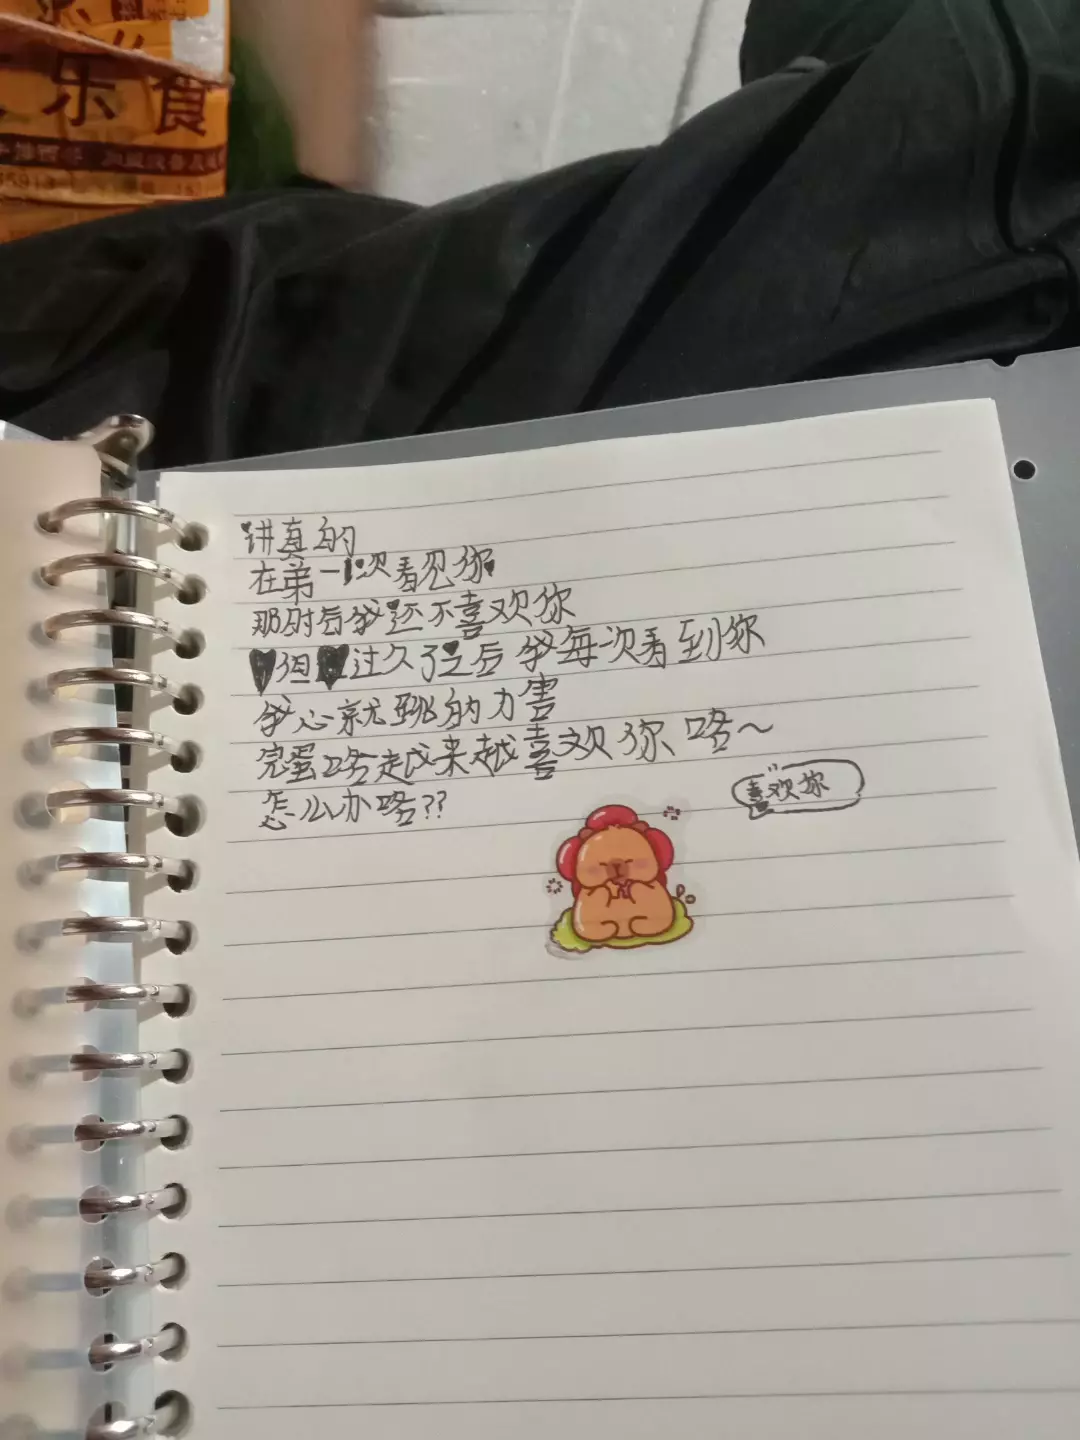 乐食
讲真的
在第一次看见你
那时后我还不喜欢你
但过久了之后我每次看到你
我心就跳的力害
完蛋咯越来越喜欢你咯~
怎么办咯??
喜欢你